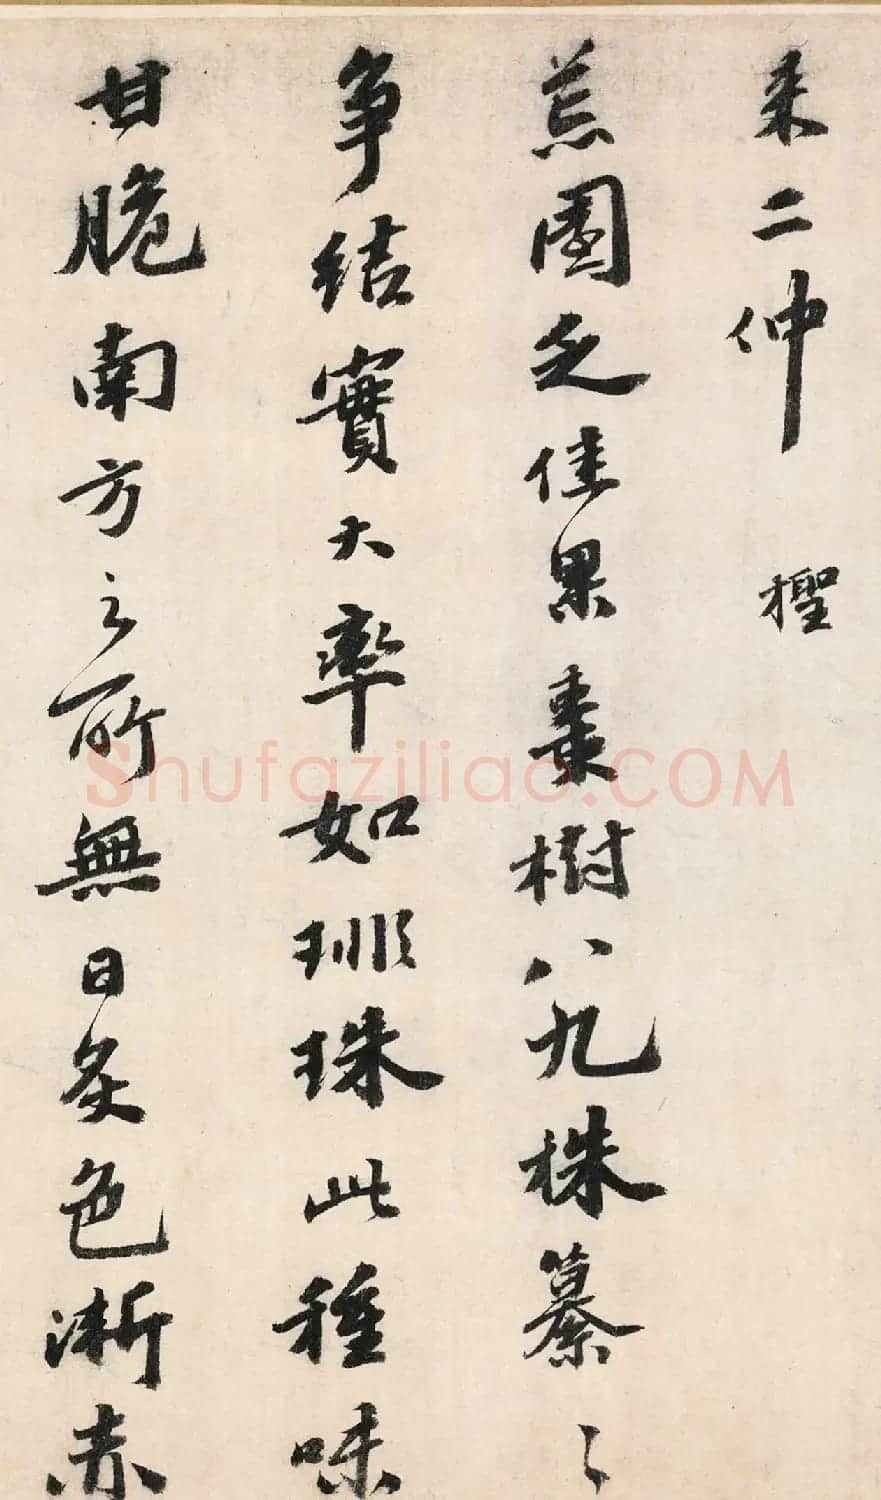 来二仲 檉
荒園乏佳果棗樹八九株纂〻
爭結實大率如琲珠此種味
甘脆南方之所無日炙色漸赤
Shufaziliao.COM